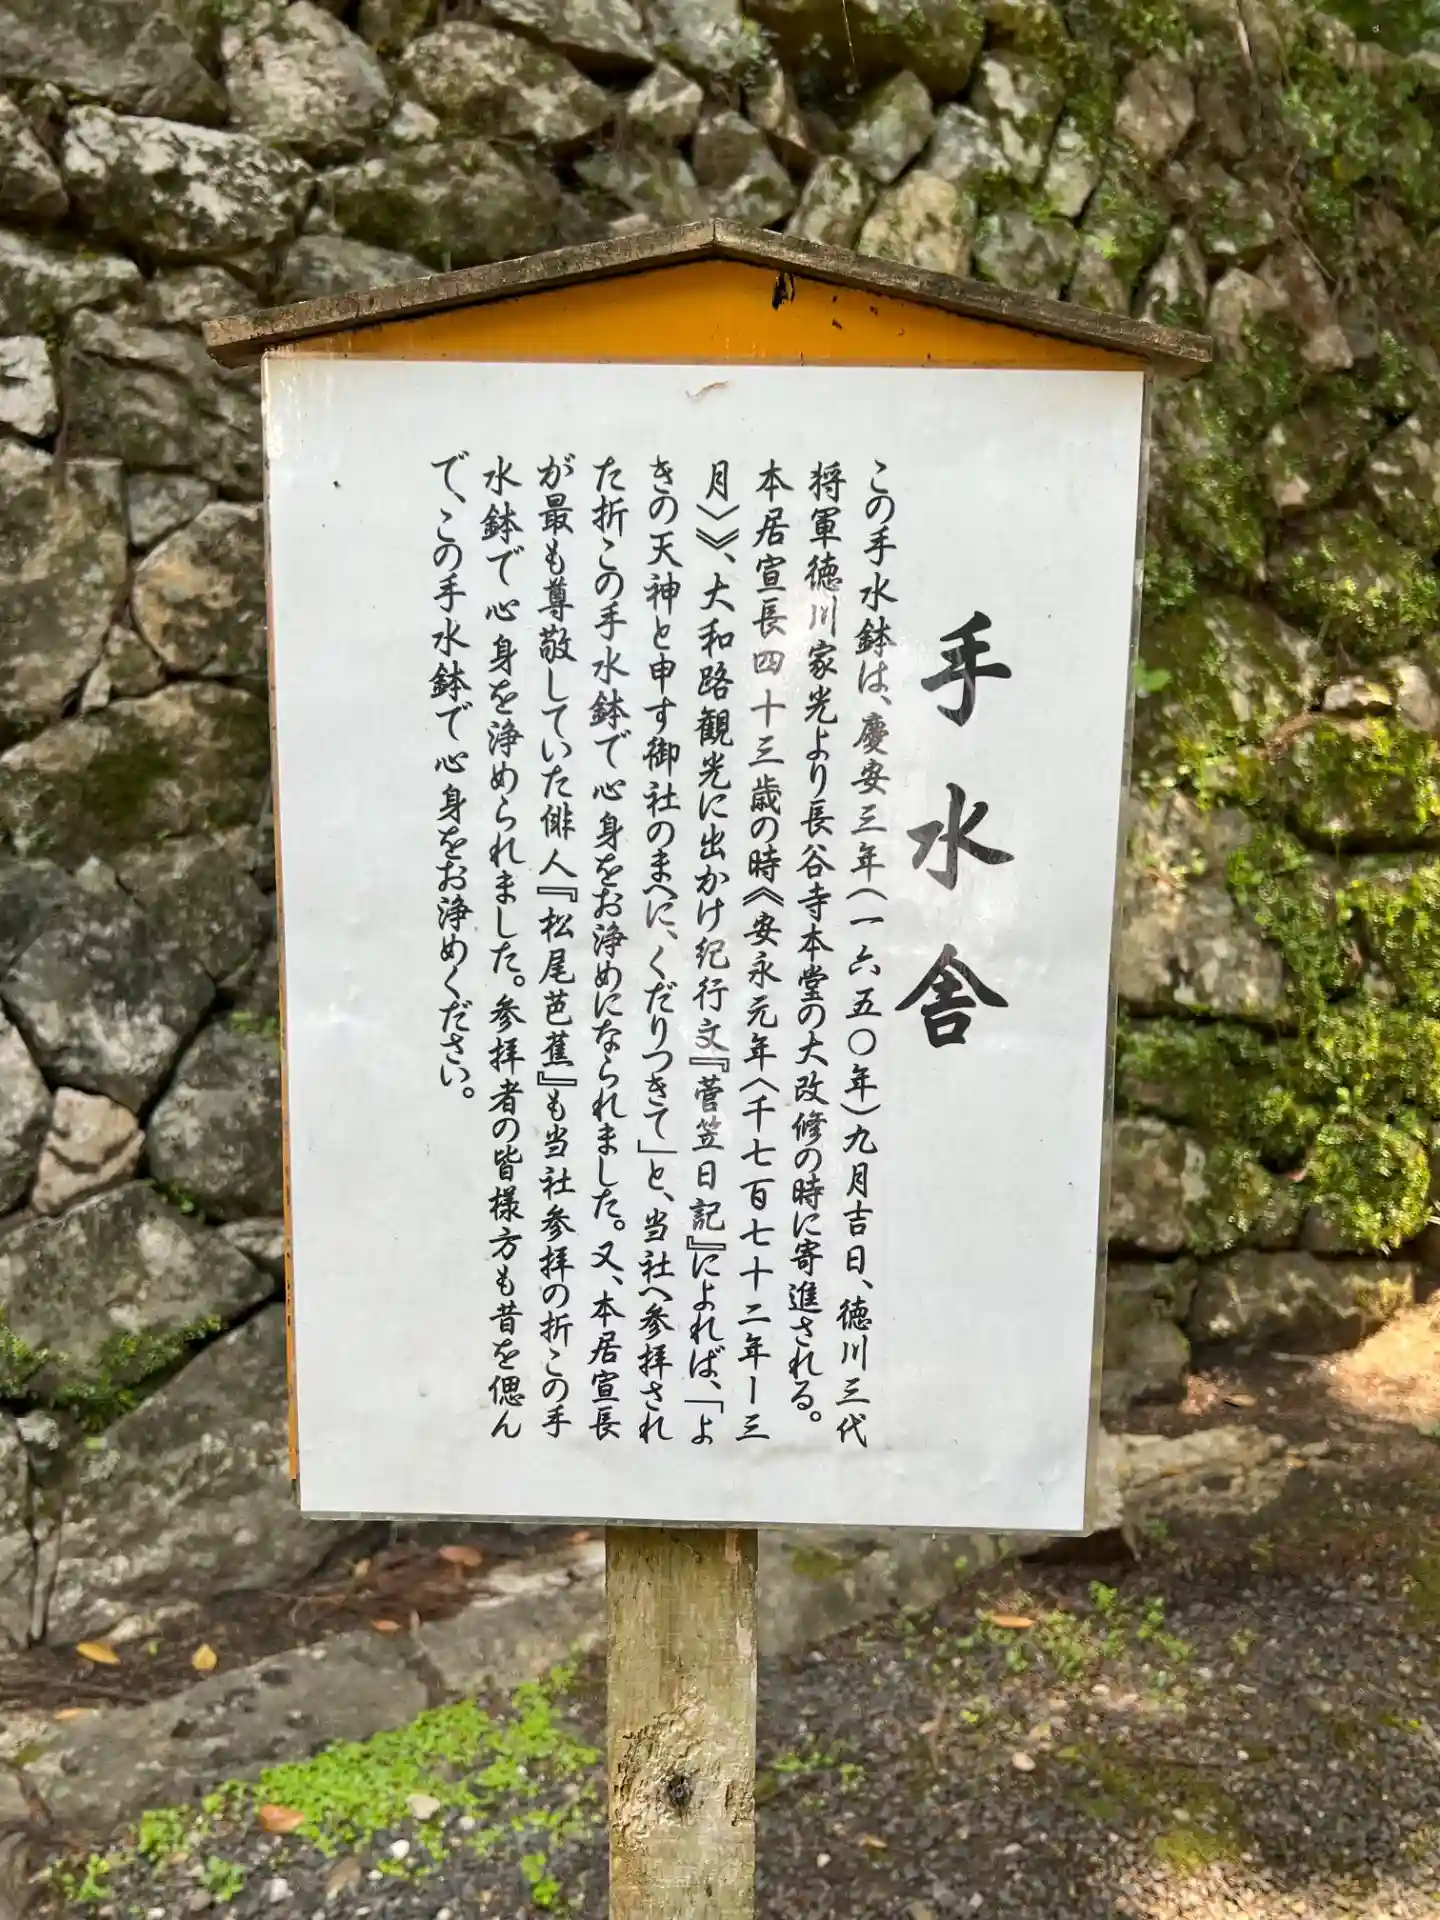 手水舎
この手水鉢は、慶安三年(一六五〇年)九月吉日、徳川三代
将軍徳川家光より長谷寺本堂の大改修の時に寄進される。
本居宣長四十三歳の時《安永元年〈千七百七十二年ー三
月〉》、大和路観光に出かけ紀行文『菅笠日記』によれば、「よ
きの天神と申す御社のまへに、くだりつきて」と、当社へ参拝され
た折この手水鉢で心身をお浄めになられました。又、本居宣長
が最も尊敬していた俳人『松尾芭蕉』も当社参拝の折この手
水鉢で心身を浄められました。参拝者の皆様方も昔を偲ん
で、この手水鉢で心身をお浄めください。